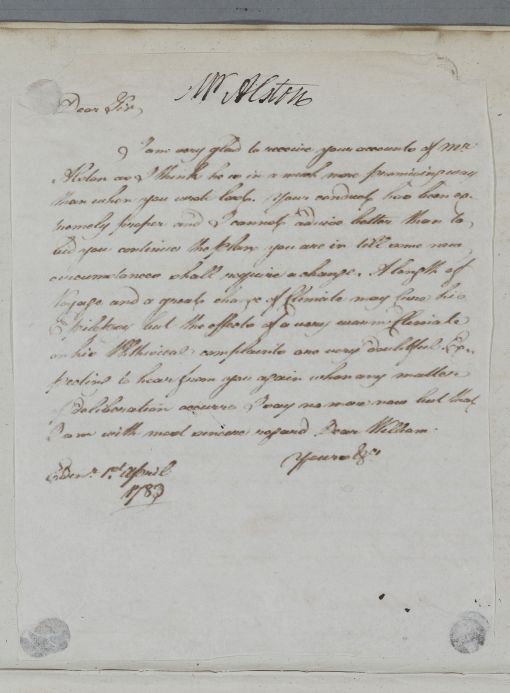 Mr Alston
Dear Sir,
I am very glad to receive your accounts of Mr.
Alston as I think he is in a much more promising way
than when you wrote last. Your conduct has been ex-
tremely proper and I cannot advise better than to
bid you continue the plan you are in till some new
circumstances shall require a change. A length of
Voyage and a great change of Climate may cure his
Epilepsy but the effects of a very warm Climate
on his Phthisical complaints are very doubtful. Ex-
pecting to hear from you again when any matter
of deliberation occurrs I say no more now but that
I am with most sincere regard Dear William
Yours &c
Edenr. 1st April
1783